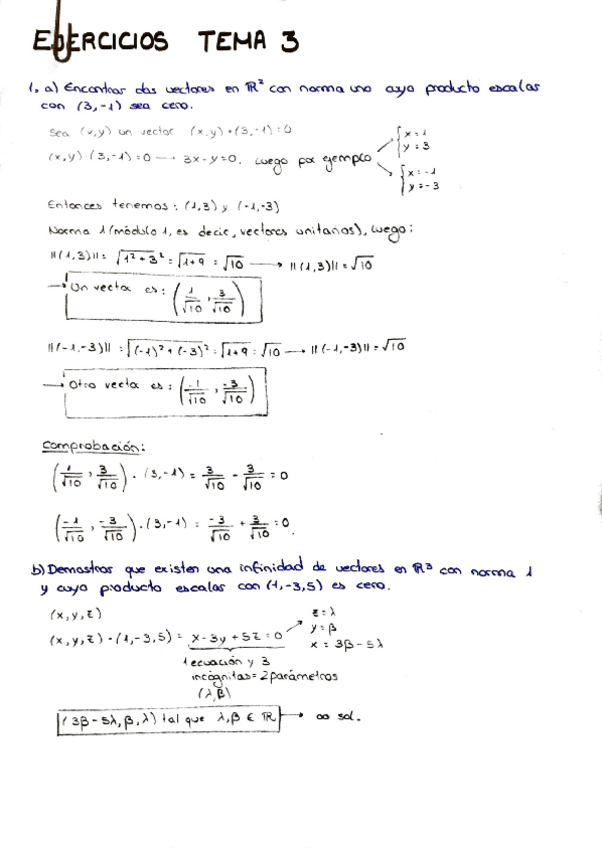 EJERCICIOS TEMA 3
1. a) Encontrar dos vectores en ℝ² con norma uno cuyo producto escalar
con (3,-1) sea cero.
Sea (x,y) un vector (x,y)·(3,-1)=0
(x,y)·(3,-1)=0 → 3x-y=0. Luego por ejemplo
{x=1
y=3
{x=-1
y=-3
Entonces tenemos: (1,3) y (-1,-3)
Norma 1 (módulo 1, es decir, vectores unitarios), luego:
||(1,3)|| = √(1²+3²) = √(1+9) = √10 → ||(1,3)|| = √10
→ Un vector es: (1/√10, 3/√10)
||(-1,-3)|| = √((-1)²+(-3)²) = √(1+9) = √10 → ||(-1,-3)|| = √10
→ Otro vector es: (-1/√10, -3/√10)
Comprobación:
(1/√10, 3/√10)·(3,-1) = 3/√10 - 3/√10 = 0
(-1/√10, -3/√10)·(3,-1) = -3/√10 + 3/√10 = 0.
b) Demostrar que existen una infinidad de vectores en ℝ³ con norma 1
y cuyo producto escalar con (1,-3,5) es cero.
(x,y,z)
(x,y,z)·(1,-3,5) = x-3y+5z=0
z=λ
y=β
x=3β-5λ
1 ecuación y 3
incógnitas=2 parámetros
(λ,β)
(3β-5λ, β, λ) tal que λ,β ∈ ℝ → ∞ sol.